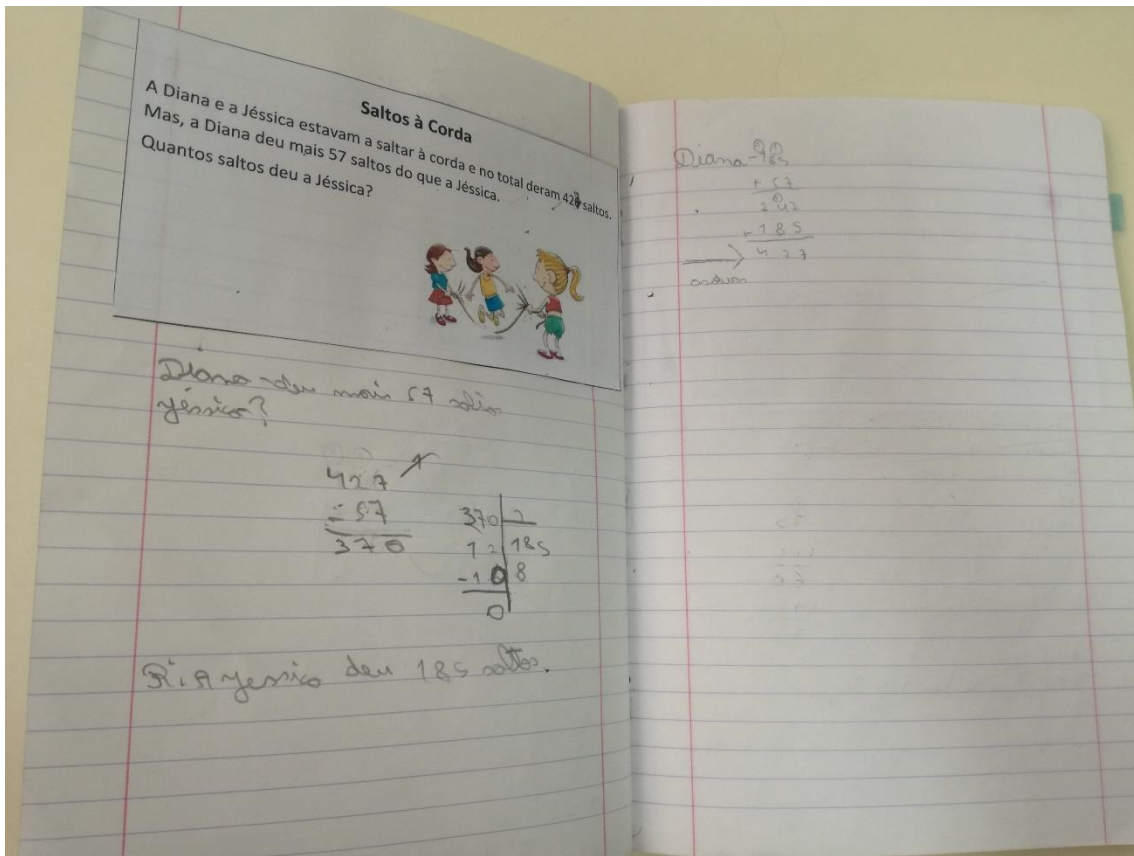 Saltos à Corda
A Diana e a Jéssica estavam a saltar à corda e no total deram 427 saltos.
Mas, a Diana deu mais 57 saltos do que a Jéssica.
Quantos saltos deu a Jéssica?
Diana - deu mais 57 saltos
Jéssica?
427
- 57
370
370 2
12 185
-10 8
0
R: A Jessica deu 185 saltos.
Diana - 185
+ 57
242
+ 185
427